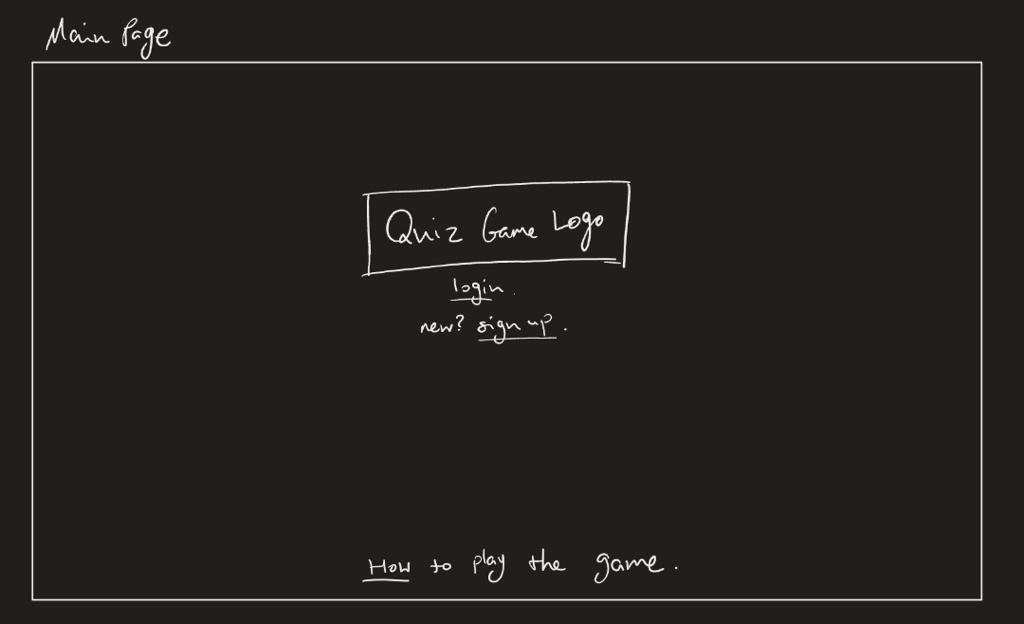 Main Page
Quiz Game Logo
login.
new? sign up.
How to play the game.